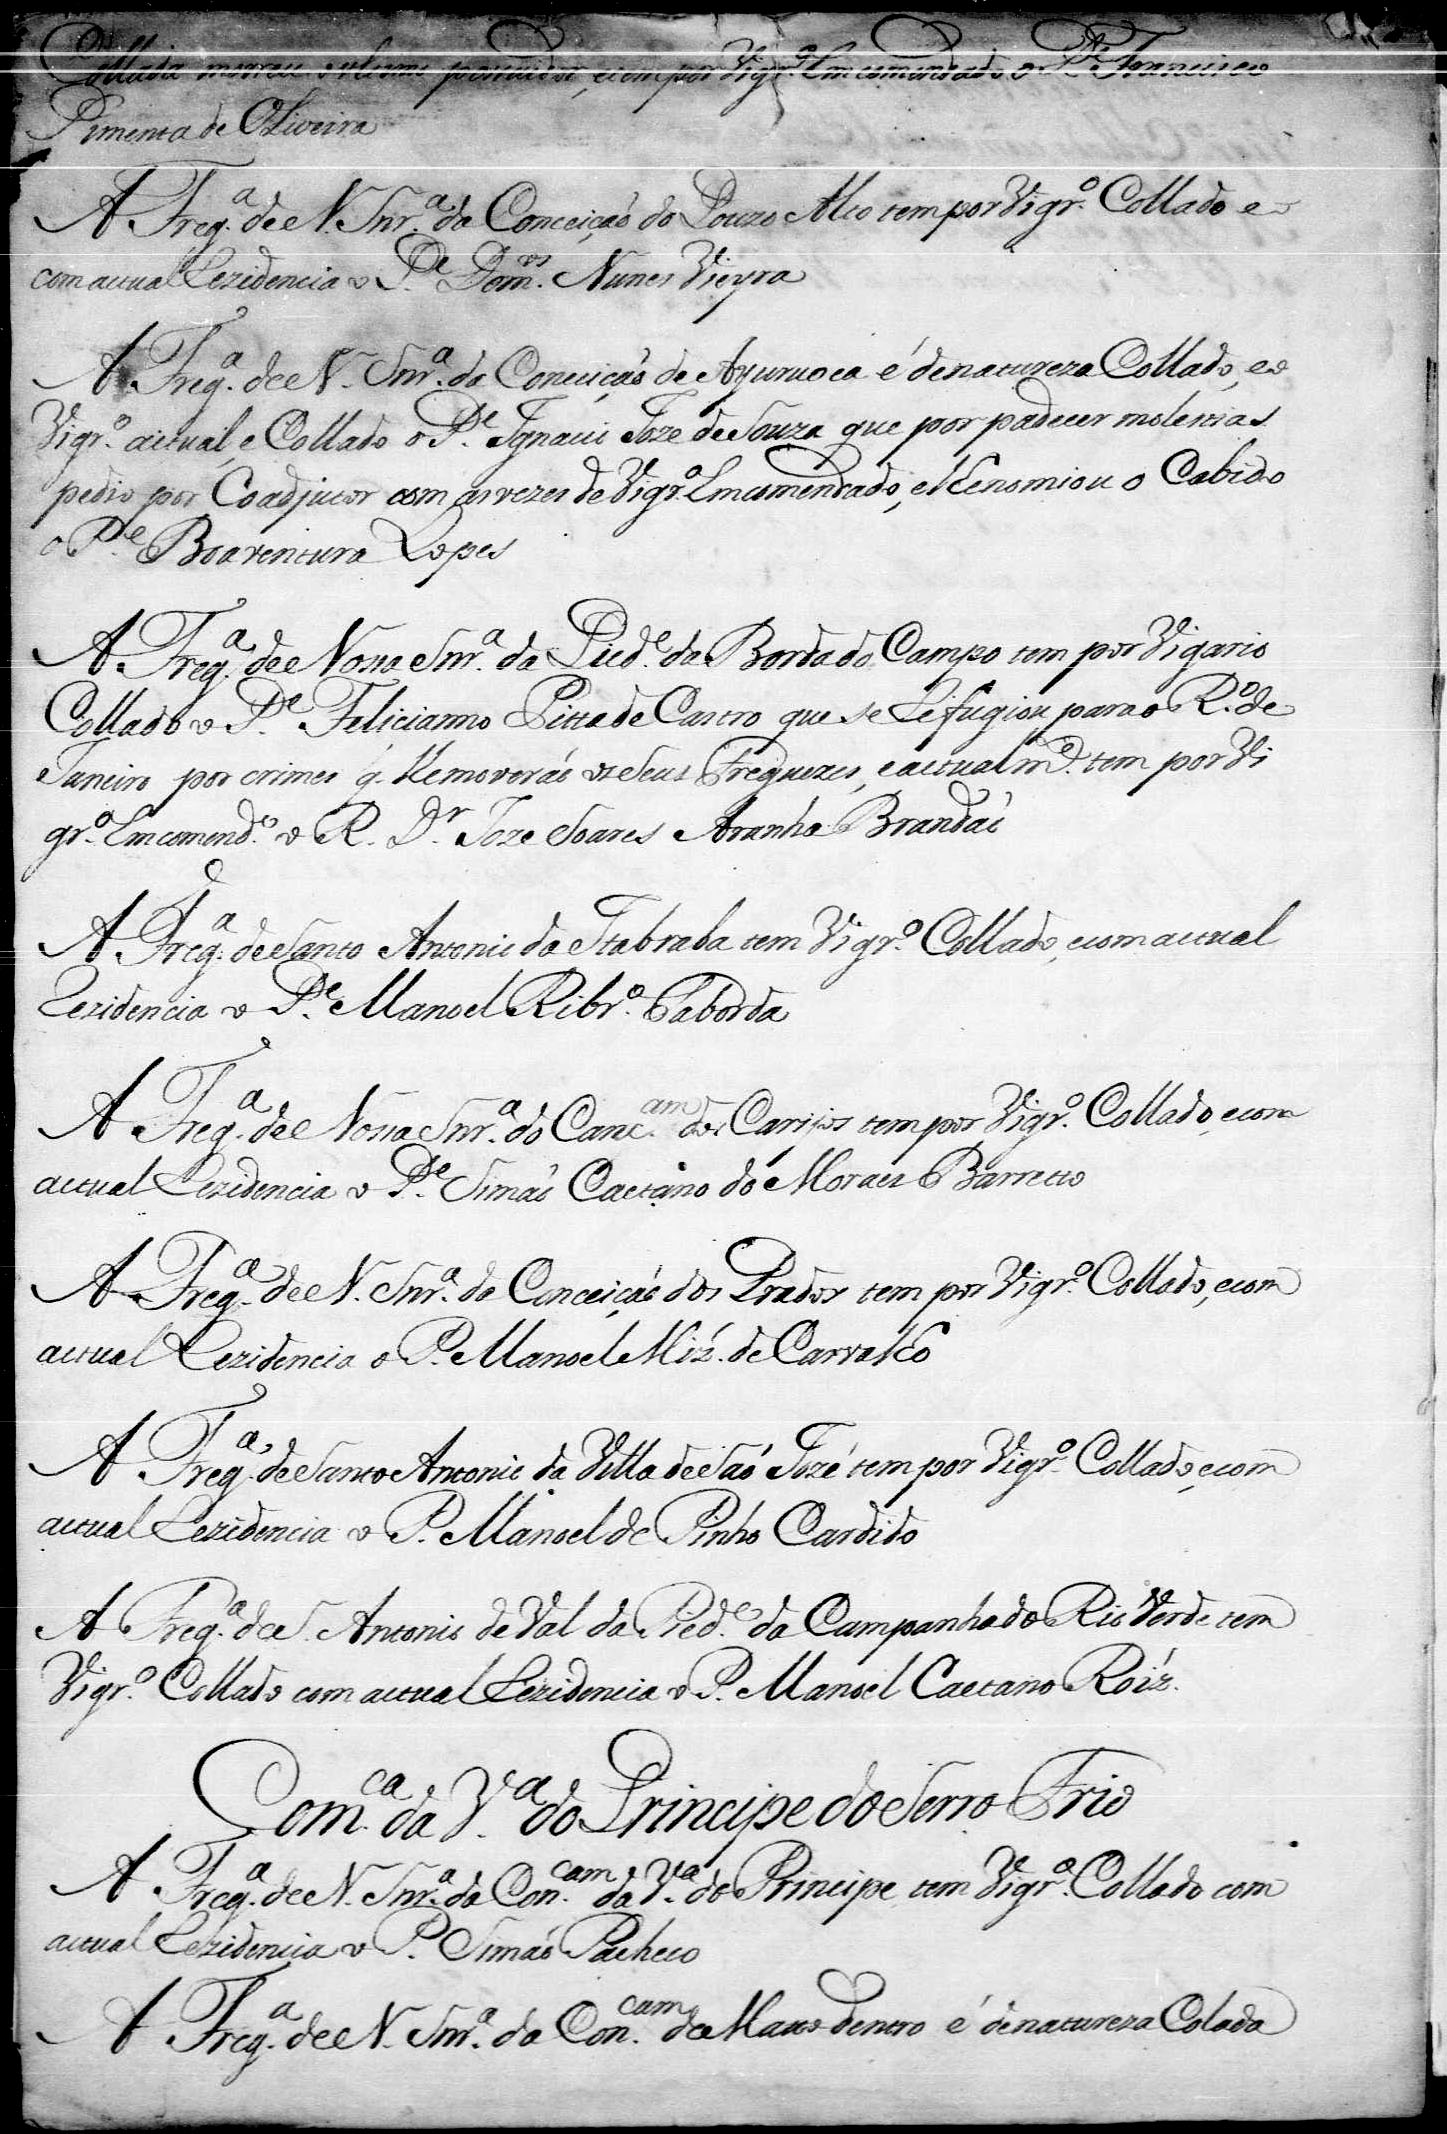 Collada morreu o ultimo possuidor, e tem por Vigr.º Emcomendado o P.e Francisco
Pimenta de Oliveira
A Freg.ª de N. Snr.ª da Conceição do Pouzo Alto tem por Vigr.º Collado e
com actual Rezidencia o P.e Dom.os Nunes Vieyra
A Freg.ª de N. Snr.ª da Conceição de Ayuruoca é de natureza Collado, e o
Vigr.º actual, e Collado o P.e Ignacio Joze de Souza que por padecer molestias
pedio por Coadjutor com as vezes de Vigr.º Emcomendado, e lhe nomiou o Cabido
o P.e Boaventura Lopes
A Freg.ª de Nossa Snr.ª da Pied.e da Borda do Campo tem por Vigario
Collado o P.e Felicianno Pitta de Castro que se Refugiou para o R.º de
Janeiro por crimes q. lhe moverão os Seus Freguezes, e actualm.e tem por Vi
gr.º Emcomend.º o R. D.r Joze Soares Aranha Brandão
A Freg.ª de Santo Antonio da Itabraba tem Vigr.º Collado, e com actual
Rezidencia o P.e Manoel Ribr.º Taborda
A Freg.ª de Nossa Snr.ª da Conc.am dos Carijos tem por Vigr.º Collado, e com
actual Rezidencia o P.e Simão Caetano de Moraes Barretto
A Freg.ª de N. Snr.ª da Conceição dos Prados tem por Vigr.º Collado, e com
actual Rezidencia o P. Manoel Miz. de Carvalho
A Freg.ª de Santo Antonio da Villa de São José tem por Vigr.º Collado, e com
actual Rezidencia o P. Manoel de Pinho Cardido
A Freg.ª de S. Antonio de Val da Pied.e da Campanha do Rio Verde tem
Vigr.º Collado com actual Rezidencia o P. Manoel Caetano Roiz.
Com.ca da V.ª do Principe do Serro Frio
A Freg.ª de N. Snr.ª da Con.cam da V.ª do Principe tem Vigr.º Collado com
actual Rezidencia o P. Simão Pacheco
A Freg.ª de N. Snr.ª da Con.cam de Mato dentro é de natureza Colada